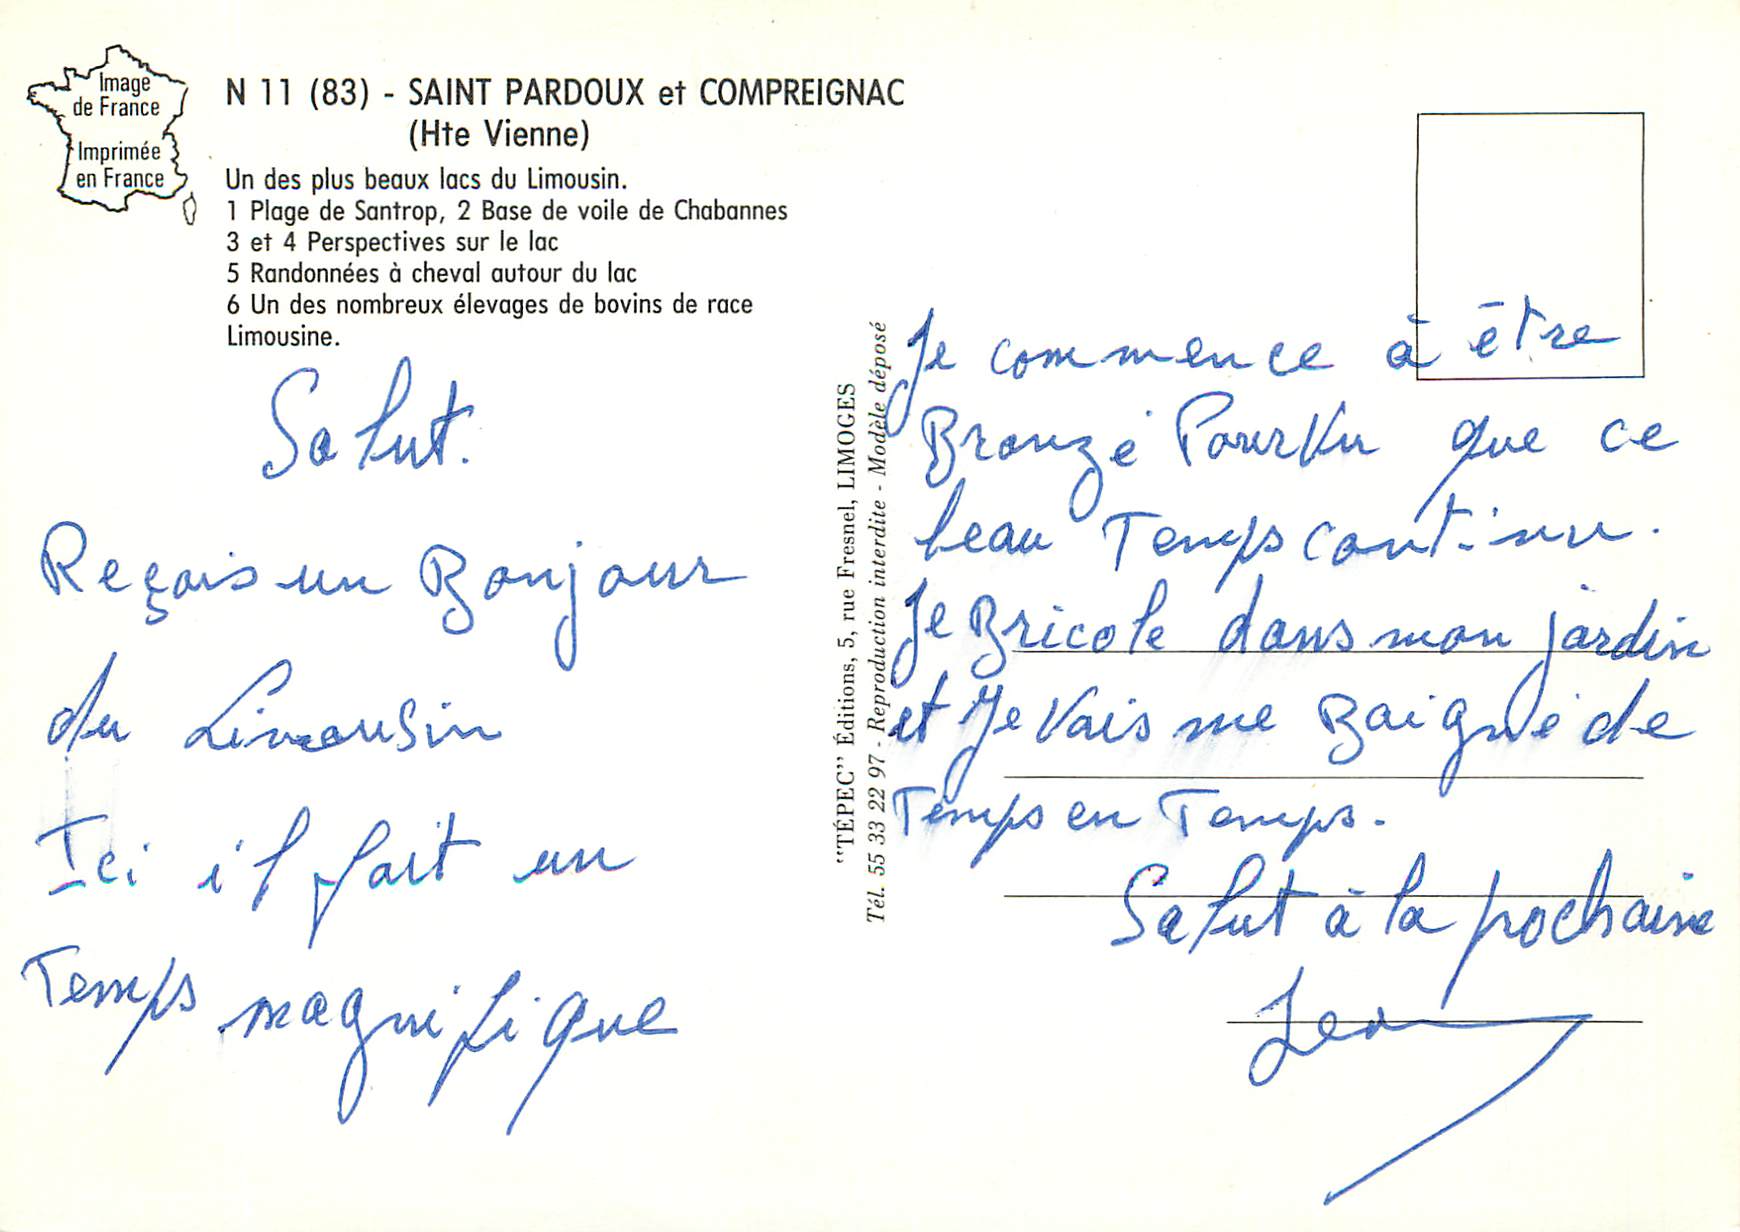 Image
de France
Imprimée
en France
N 11 (83) - SAINT PARDOUX et COMPREIGNAC
(Hte Vienne)
Un des plus beaux lacs du Limousin.
1 Plage de Santrop, 2 Base de voile de Chabannes
3 et 4 Perspectives sur le lac
5 Randonnées à cheval autour du lac
6 Un des nombreux élevages de bovins de race
Limousine.
Salut.
Reçois un Bonjour
du Limousin
Ici il fait un
Temps magnifique
"TÉPEC" Éditions, 5, rue Fresnel, LIMOGES
Tél. 55 33 22 97 - Reproduction interdite - Modèle déposé
Je commence à être
Bronzé PourVu que ce
beau Temps continu.
Je Bricole dans mon jardin
et Je Vais me Baigné de
Temps en Temps.
Salut à la prochaine
Jean